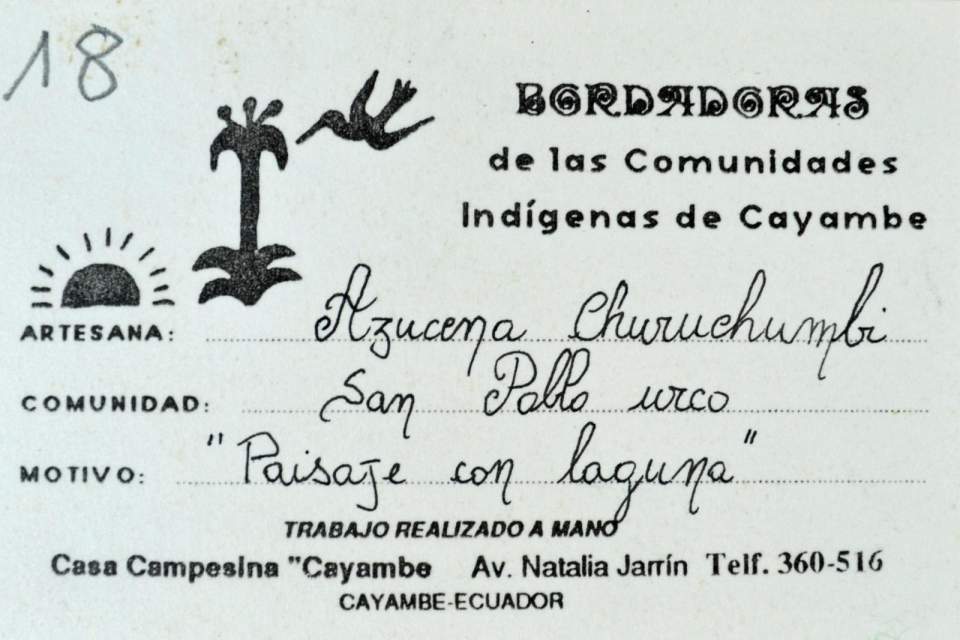 18
BORDADORAS
de las Comunidades
Indígenas de Cayambe
ARTESANA: Azucena Churuchumbi
COMUNIDAD: San Pablo urco
MOTIVO: "Paisaje con laguna"
TRABAJO REALIZADO A MANO
Casa Campesina "Cayambe Av. Natalia Jarrín Telf. 360-516
CAYAMBE-ECUADOR